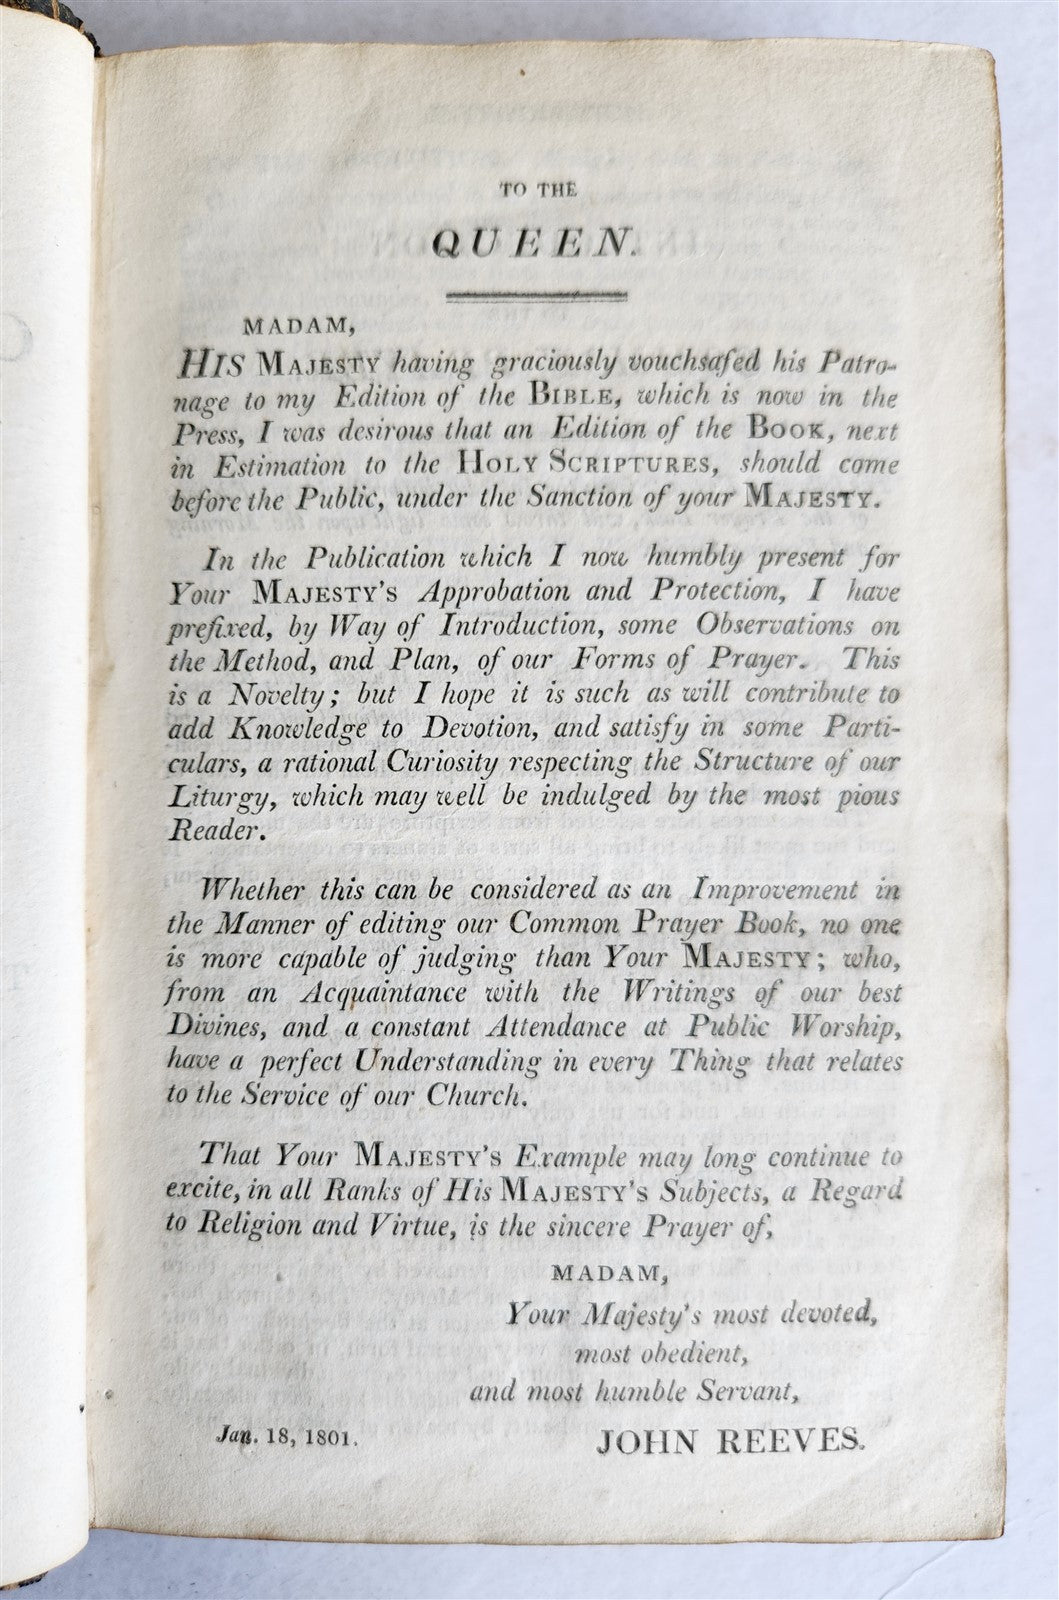 TO THE
QUEEN.
MADAM,
HIS MAJESTY having graciously vouchsafed his Patro-
nage to my Edition of the BIBLE, which is now in the
Press, I was desirous that an Edition of the BOOK, next
in Estimation to the HOLY SCRIPTURES, should come
before the Public, under the Sanction of your MAJESTY.
In the Publication which I now humbly present for
Your MAJESTY'S Approbation and Protection, I have
prefixed, by Way of Introduction, some Observations on
the Method, and Plan, of our Forms of Prayer. This
is a Novelty; but I hope it is such as will contribute to
add Knowledge to Devotion, and satisfy in some Parti-
culars, a rational Curiosity respecting the Structure of our
Liturgy, which may well be indulged by the most pious
Reader.
Whether this can be considered as an Improvement in
the Manner of editing our Common Prayer Book, no one
is more capable of judging than Your MAJESTY; who,
from an Acquaintance with the Writings of our best
Divines, and a constant Attendance at Public Worship,
have a perfect Understanding in every Thing that relates
to the Service of our Church.
That Your MAJESTY'S Example may long continue to
excite, in all Ranks of His MAJESTY'S Subjects, a Regard
to Religion and Virtue, is the sincere Prayer of,
MADAM,
Your Majesty's most devoted,
most obedient,
and most humble Servant,
Jan. 18, 1801. JOHN REEVES.